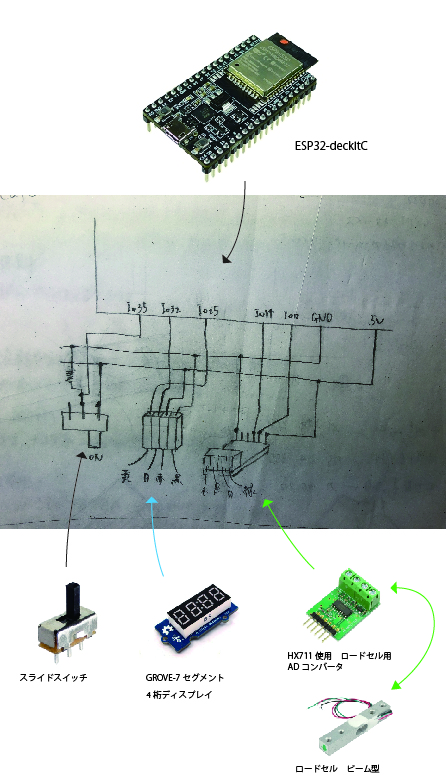 ESP32-deckitC
Io35 Io32 Io25 Io14 Io12 GND 5V
ON
黄 白 赤 黒
スライドスイッチ
GROVE-7 セグメント
4 桁ディスプレイ
HX711 使用　ロードセル用
AD コンバータ
ロードセル　ビーム型